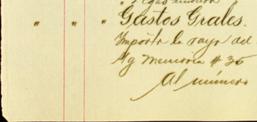 " " " Gastos Grales.
Importe la raya del
Ag Memoria # 36
Al número